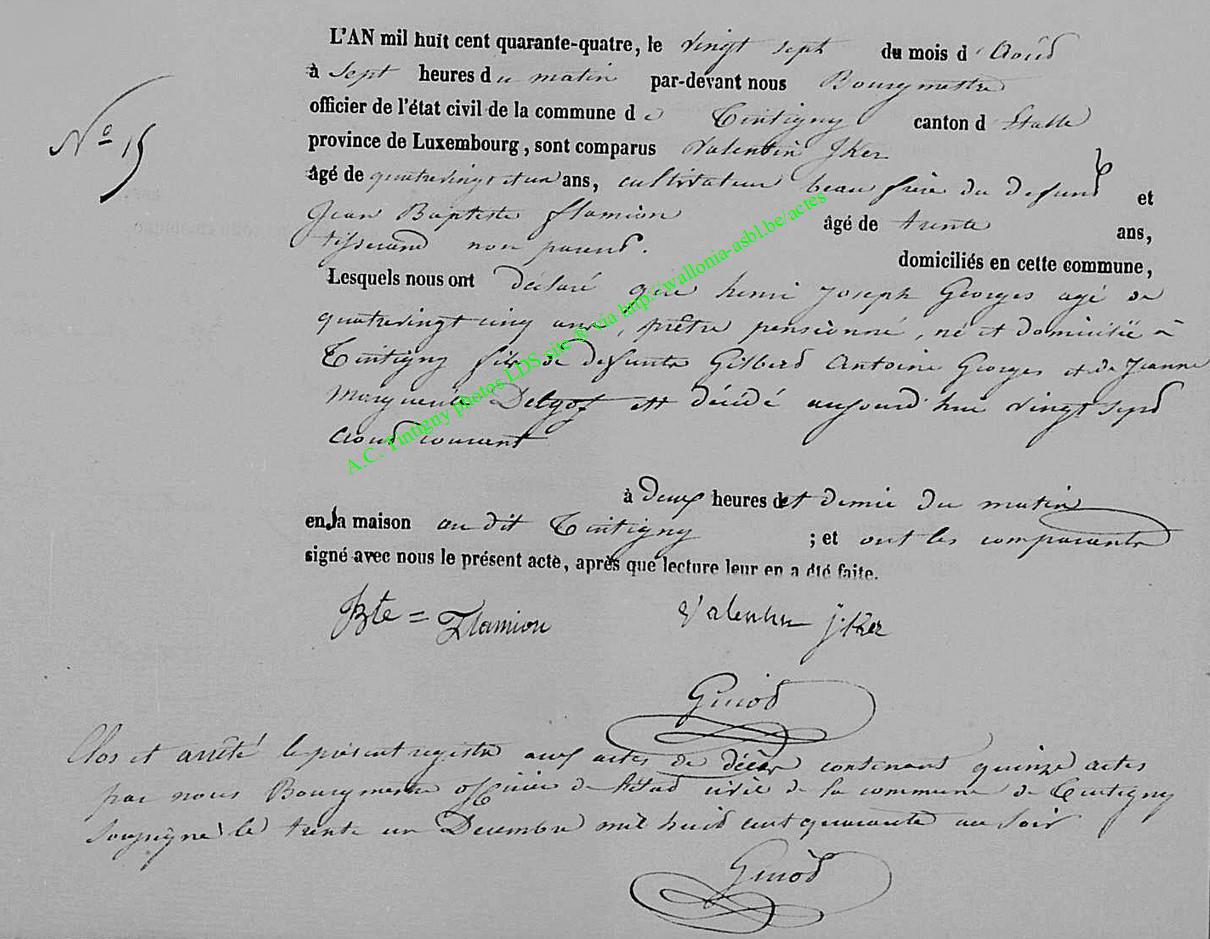 L'AN mil huit cent quarante-quatre, le vingt sept du mois d'Aoûd
à Sept heures du matin par-devant nous Bourgmestre
officier de l'état civil de la commune de Tintigny canton d'Etalle
province de Luxembourg, sont comparus Valentin Jker
N° 15
âgé de quatrevingt et un ans, cultivateur beau frère du defund et
Jean Baptiste flamion âgé de trente ans,
tisserand non parend. domiciliés en cette commune,
Lesquels nous ont déclaré que henri Joseph Georges agé de
quatrevingt cinq ans, prêtre pensionné, né et domicilié à
Tintigny fils de defunts Antoine Georges et de Jeanne
Marguerite est décédé aujourd'hui vingt sept
Aoud courant
à deux heures et demie du matin
en la maison au dit Tintigny ; et ont les comparants
signé avec nous le présent acte, après que lecture leur en a été faite.
Bte = Flamion Valentin jker
Clos et arrêté le présent registre aux actes de décès contenant quinze actes
par nous Bourgmestre officier de l'Etad civil de la commune de Tintigny
soussigné le trente un Decembre mil huid cent quarante au soir
A.C. Tintigny photos LDS site @ via http://wallonia-asbl.be/actes